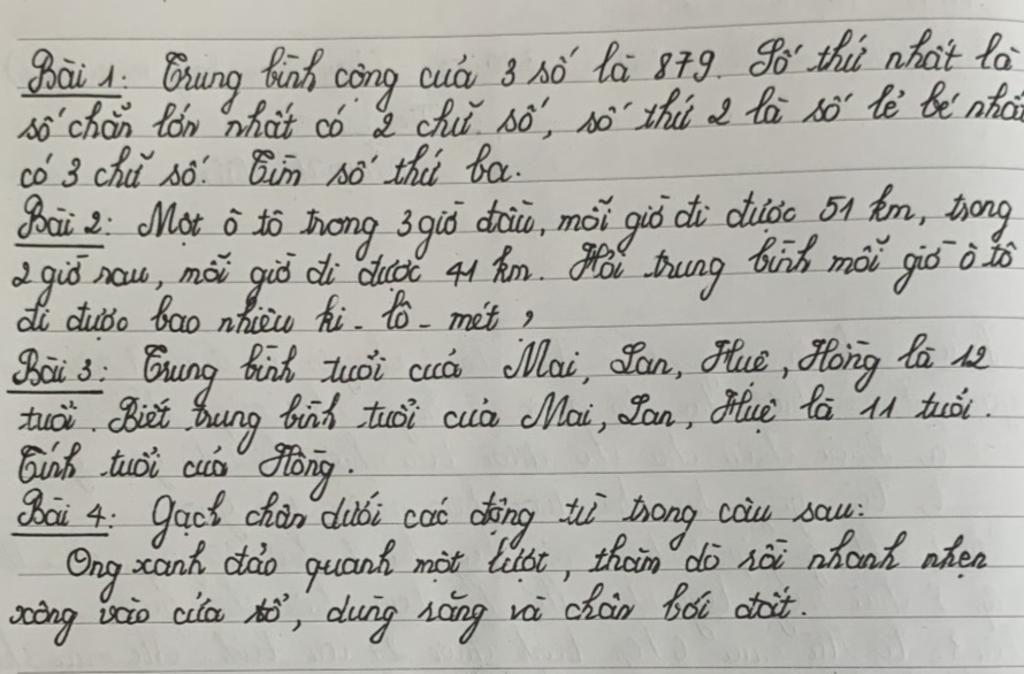 Bài 1: Trung bình cộng của 3 số là 879. Số thứ nhất là
số chẵn lớn nhất có 2 chữ số, số thứ 2 là số lẻ bé nhất
có 3 chữ số. Tìm số thứ ba.
Bài 2: Một ô tô trong 3 giờ đầu, mỗi giờ đi được 51 km, trong
2 giờ sau, mỗi giờ đi được 41 km. Hỏi trung bình mỗi giờ ô tô
đi được bao nhiêu ki-lô-mét?
Bài 3: Trung bình tuổi của Mai, Lan, Huệ, Hồng là 12
tuổi. Biết trung bình tuổi của Mai, Lan, Huệ là 11 tuổi.
Tính tuổi của Hồng.
Bài 4: Gạch chân dưới các động từ trong câu sau:
Ong xanh đảo quanh một lượt, thăm dò rồi nhanh nhẹn
xông vào cửa tổ, dùng răng và chân bới đất.